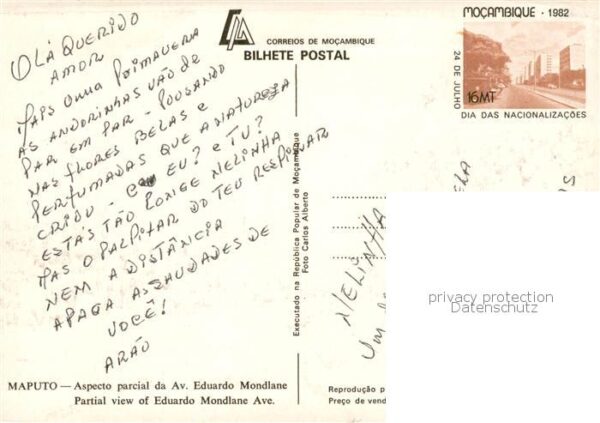 OLÁ QUERIDO
AMOR
MAPS Outra PRIMAVERA
AS ANDORINHAS VÃO DE
PAR EM PAR - POUSANDO
NAS FLORES BELAS E
PERFUMADAS QUE A NATUREZA
CRIOU - EU? E TU?
ESTÁS TÃO LONGE NELINHA
MAS O PALPITAR DO TEU RESPIRAR
NEM A DISTÂNCIA
APAGA AS SAUDADES DE
VOCÊ!
ARÃO
CORREIOS DE MOÇAMBIQUE
BILHETE POSTAL
MOÇAMBIQUE · 1982
24 DE JULHO
16MT
DIA DAS NACIONALIZAÇÕES
Executado na República Popular de Moçambique
Foto Carlos Alberto
NELINHA
privacy protection
Datenschutz
MAPUTO — Aspecto parcial da Av. Eduardo Mondlane
Partial view of Eduardo Mondlane Ave.
Reprodução p
Preço de vend